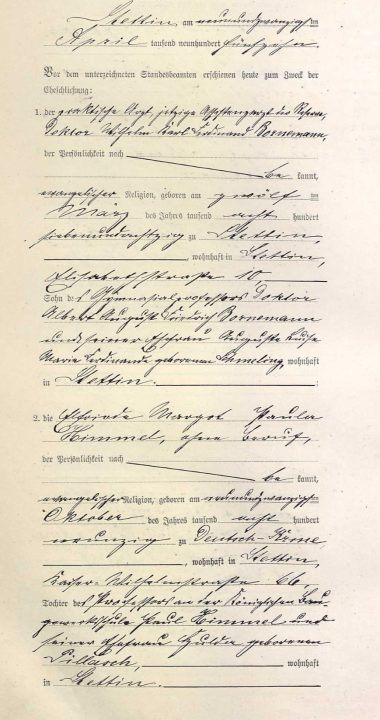 Stettin am neunundzwanzigsten
April tausend neunhundert fünfzehn.
Vor dem unterzeichneten Standesbeamten erschienen heute zum Zweck der
Eheschließung:
1. der praktische Arzt, jetzige Assistenzarzt der Reserve,
Doktor Wilhelm Karl Ferdinand Bornemann,
der Persönlichkeit nach
be kannt,
evangelischer Religion, geboren am zwölften
März des Jahres tausend acht hundert
siebenundachtzig zu Stettin,
, wohnhaft in Stettin,
Elisabethstraße 10,
Sohn des Gymnasialprofessors Doktor
Albert August Bornemann
und seiner Ehefrau Auguste Luise
Marie Ferdinande geborenen Schmeling, wohnhaft
in Stettin. :
2. die Elfriede Margot Paula
Himmel, ohne Beruf,
der Persönlichkeit nach
be kannt,
evangelischer Religion, geboren am neunundzwanzigsten
Oktober des Jahres tausend acht hundert
neunzig zu Deutsch-Krone
, wohnhaft in Stettin,
Kaiser-Wilhelmstraße 66,
Tochter des Professors an der Königlichen Bau-
gewerkschule Paul Himmel und
seiner Ehefrau Hulda geborenen
wohnhaft
in Stettin.